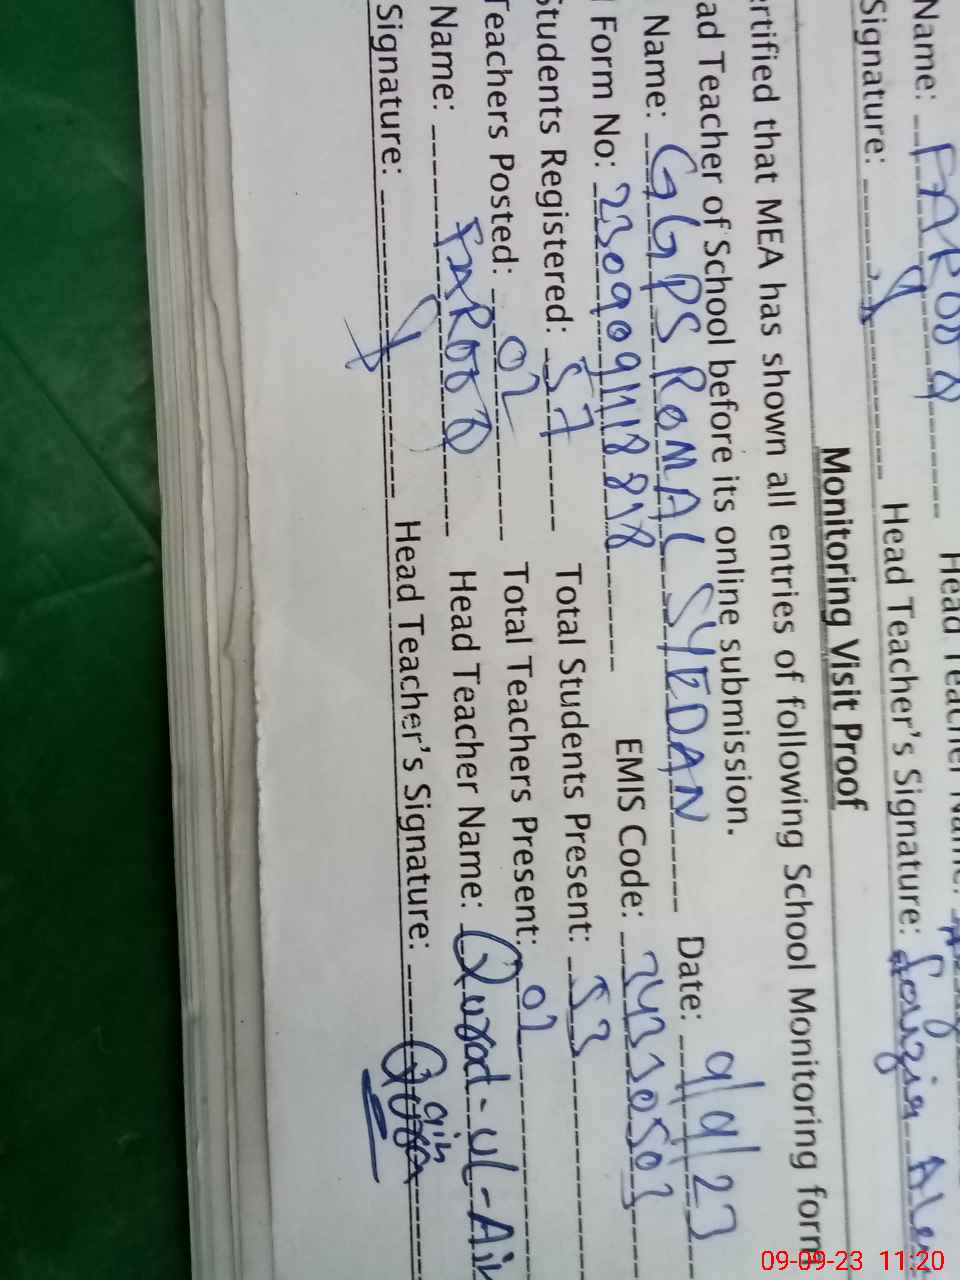 Name: FAROOQ Head Teacher Name:
Signature: Head Teacher's Signature:
Monitoring Visit Proof
ertified that MEA has shown all entries of following School Monitoring form
ad Teacher of School before its online submission.
Name: GGPS ROMAL SYEDAN Date: 9/9/23
Form No: EMIS Code:
Students Registered: 57 Total Students Present: 53
Teachers Posted: 02 Total Teachers Present: 02
Name: FAROOQ Head Teacher Name: Qurat-ul-Ain
Signature: Head Teacher's Signature:
09-09-23 11:20